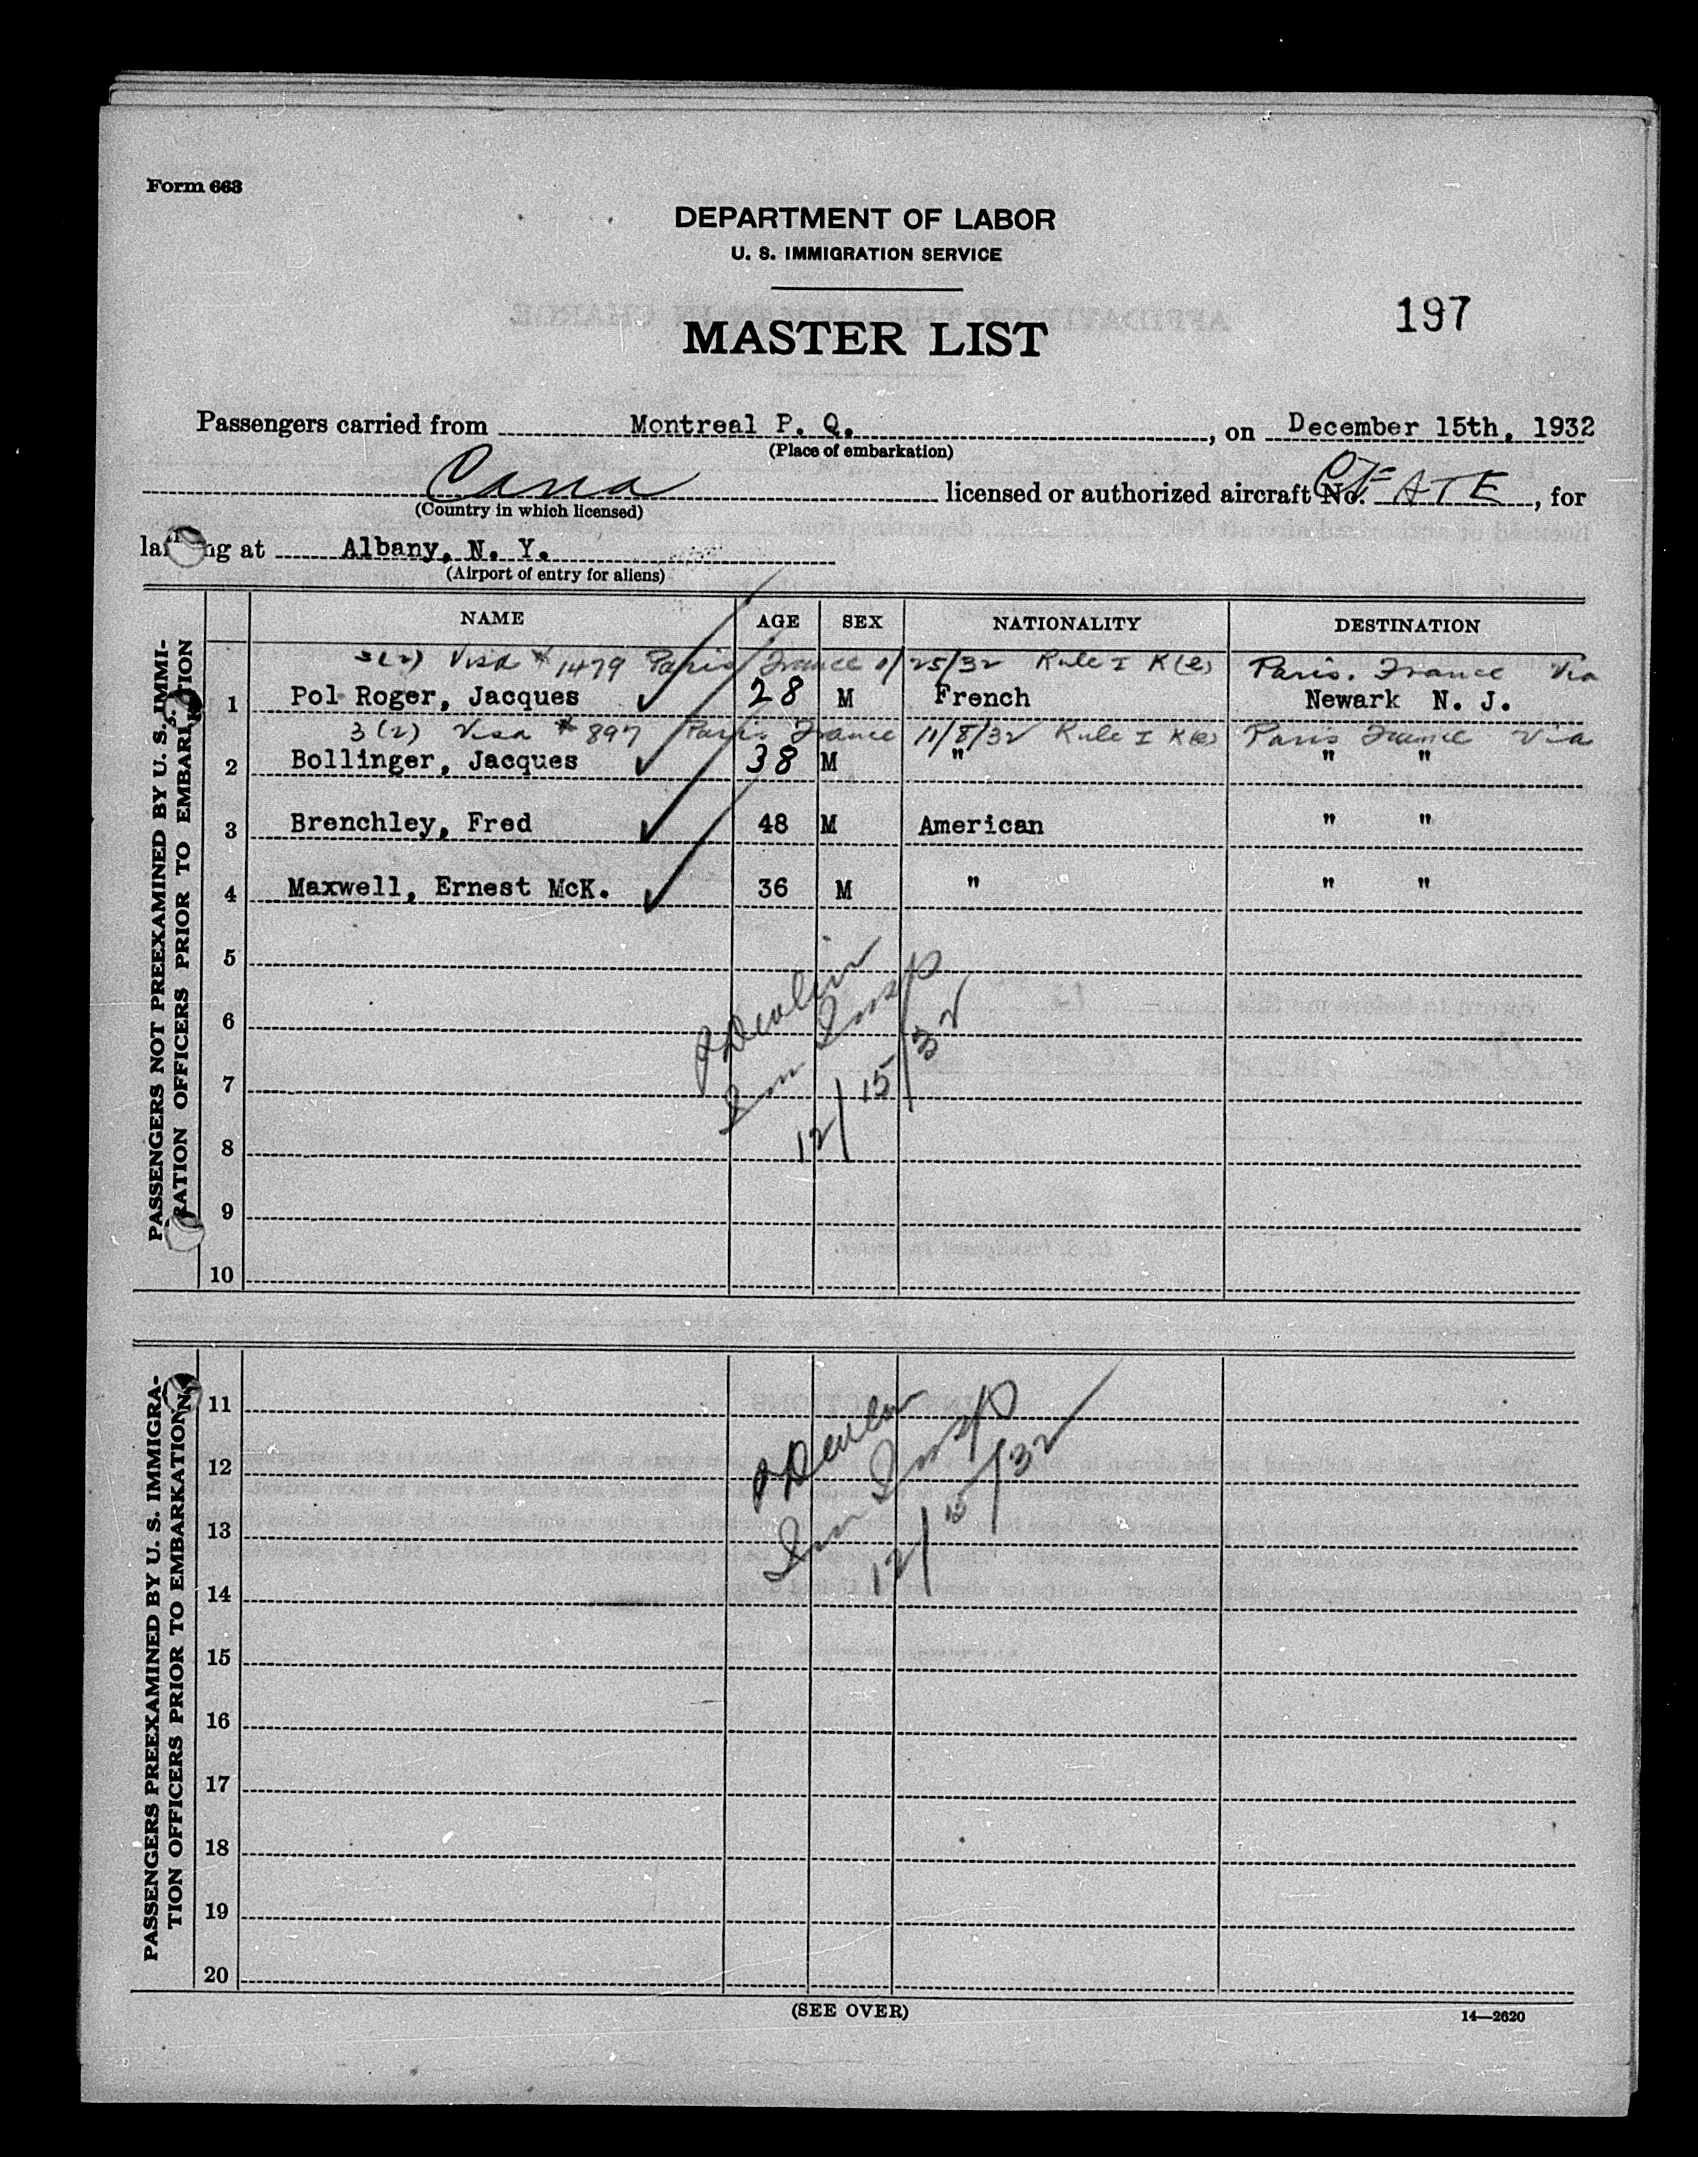 Form 663
DEPARTMENT OF LABOR
U. S. IMMIGRATION SERVICE
197
MASTER LIST
Passengers carried from Montreal P. Q., on December 15th, 1932
(Place of embarkation)
Cana licensed or authorized aircraft No. CF-ATE, for
(Country in which licensed)
landing at Albany, N. Y.
(Airport of entry for aliens)
PASSENGERS NOT PREEXAMINED BY U. S. IMMI-
GRATION OFFICERS PRIOR TO EMBARKATION
NAME AGE SEX NATIONALITY DESTINATION
3(2) Visa # 1479 Paris France 11/25/32 Rule I K(e) Paris. France Via
1 Pol Roger, Jacques 28 M French Newark N. J.
3(2) Visa # 897 Paris France 11/8/32 Rule I K(e) Paris France Via
2 Bollinger, Jacques 38 M " " "
3 Brenchley, Fred 48 M American " "
4 Maxwell, Ernest McK. 36 M " " "
5
6
7
8
9
10
J Devlin
Im Insp
12/15/32
PASSENGERS PREEXAMINED BY U. S. IMMIGRA-
TION OFFICERS PRIOR TO EMBARKATION
11
12
13
14
15
16
17
18
19
20
J Devlin
Im Insp
12/15/32
(SEE OVER)
14—2620